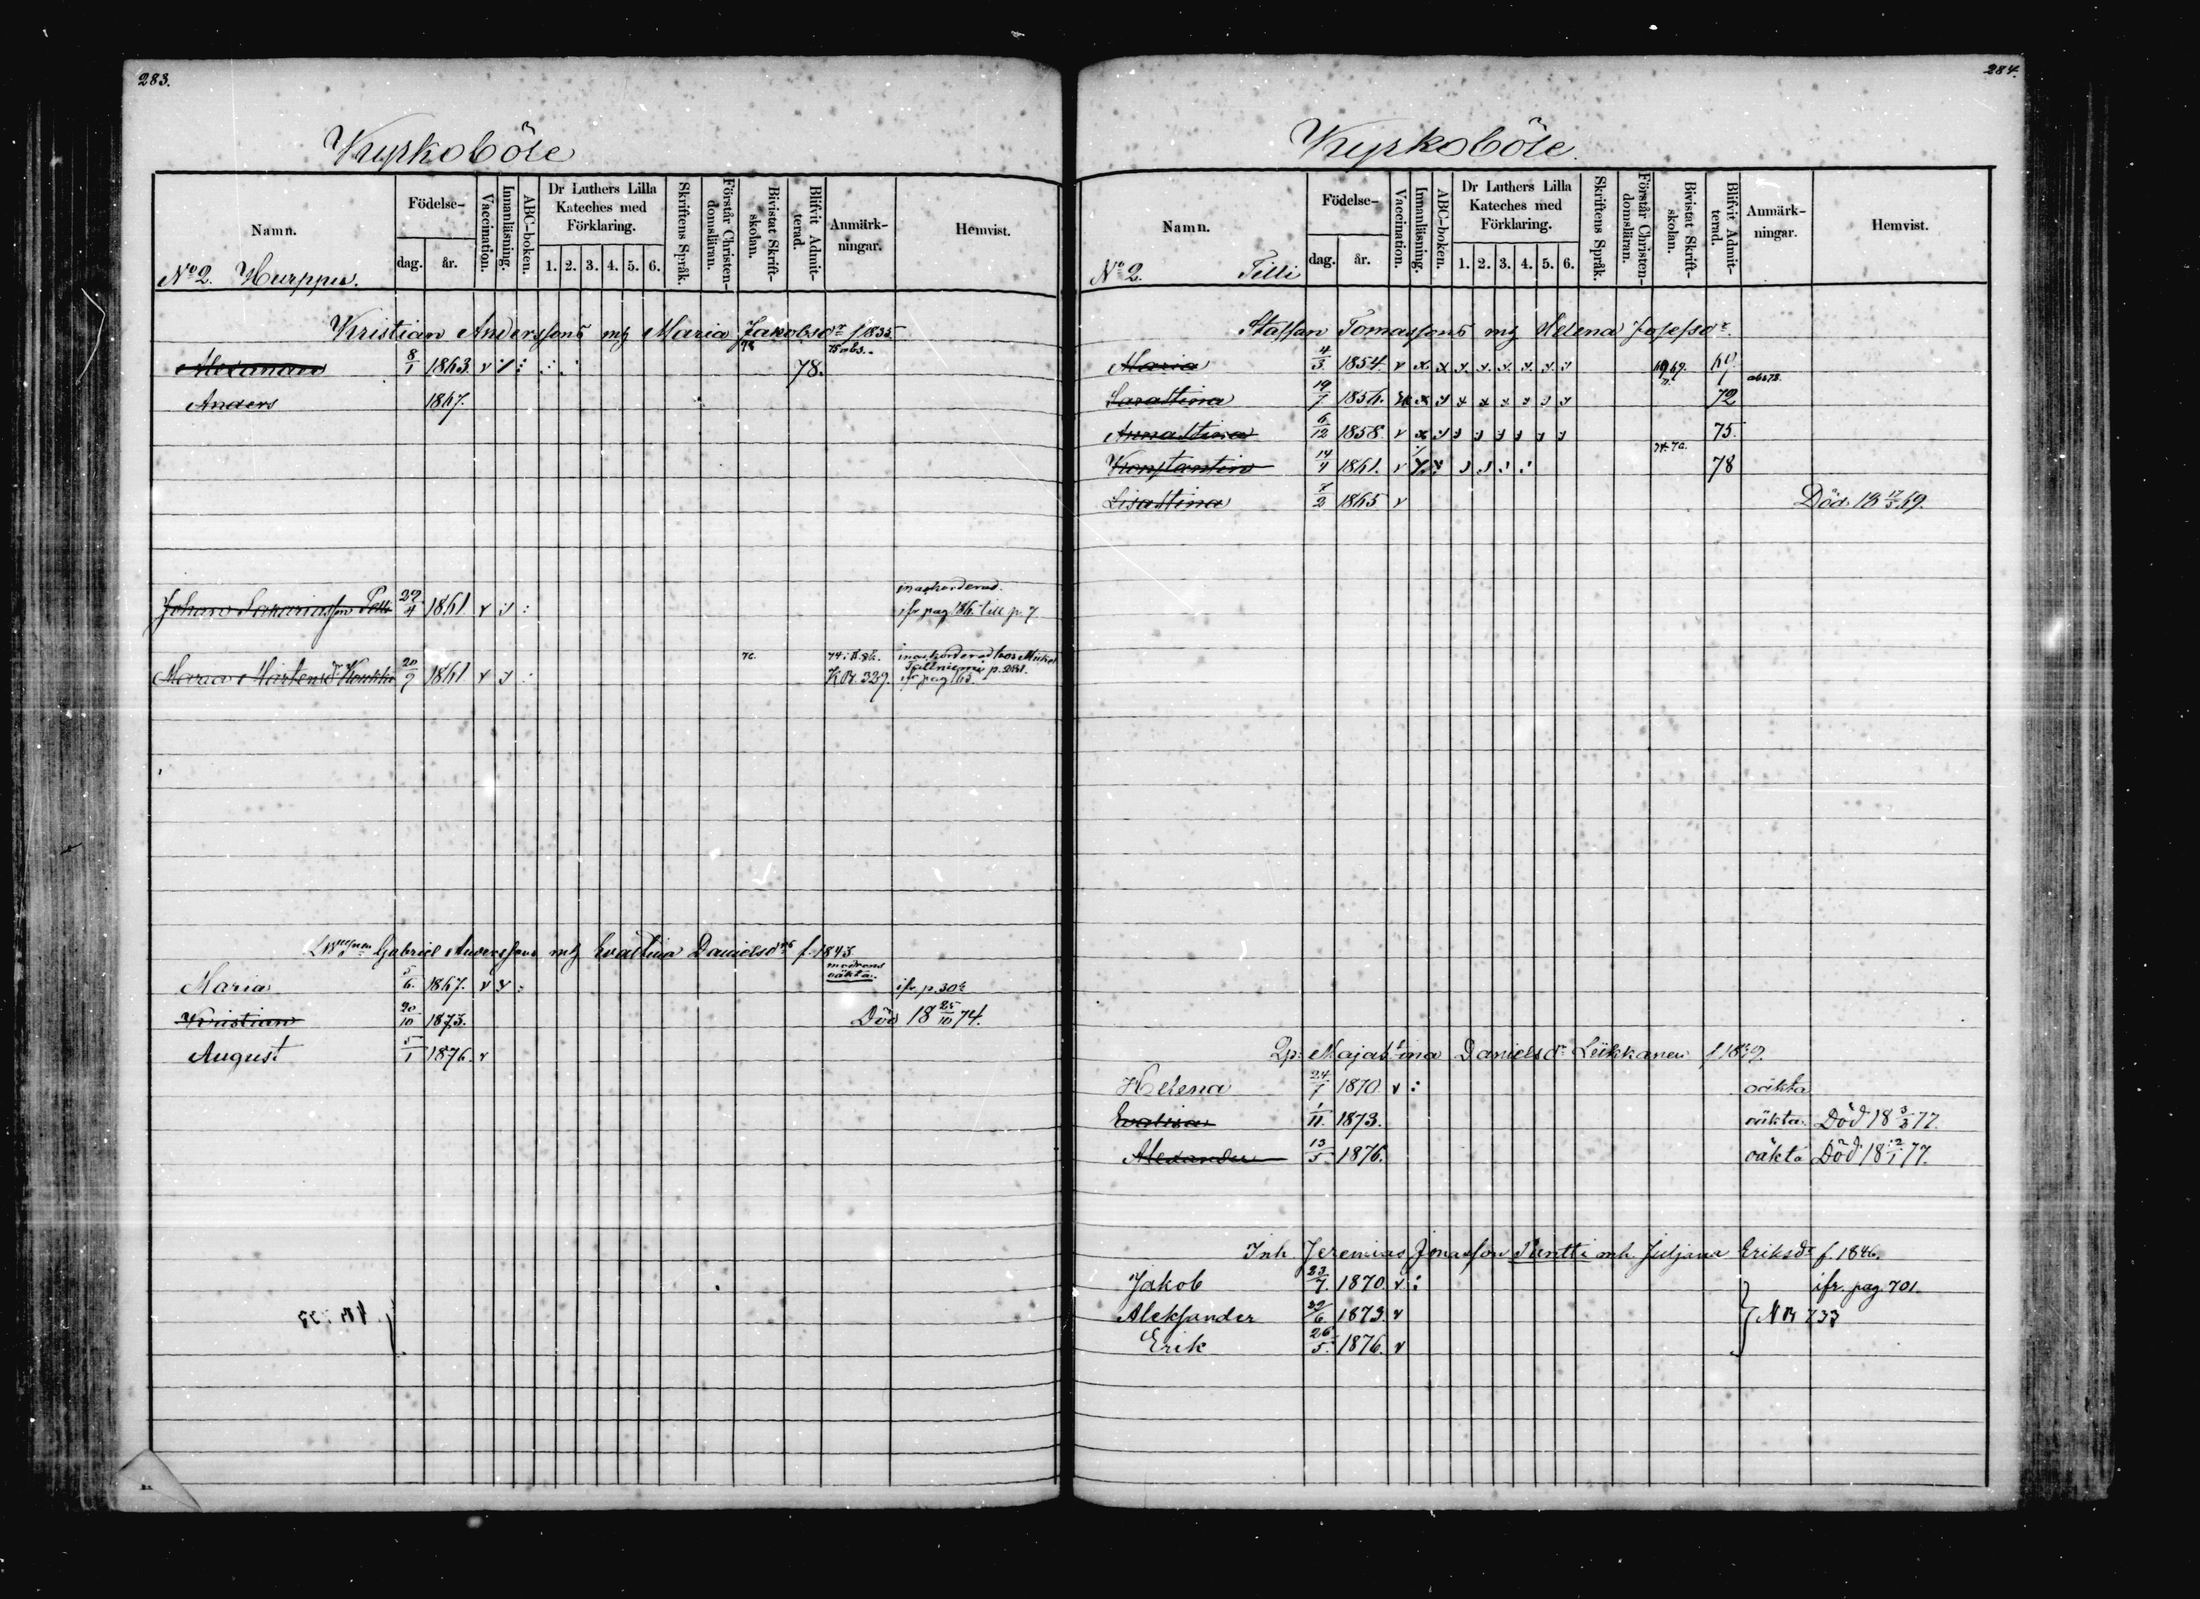 283.
Kyrkoböle
Namn.
Födelse-
dag.
år.
Vaccination.
Innanläsning.
ABC-boken.
Dr Luthers Lilla
Kateches med
Förklaring.
1. 2. 3. 4. 5. 6.
Skriftens Språk.
Förstår Christen-
domsläran.
Bivistat Skrift-
skolan.
Blifvit Admit-
terad.
Anmärk-
ningar.
Hemvist.
No 2. Hurppu.
Kristian Anderssons mg Maria Jakobsdr f 1835
8/1 1863. v 78.
Anders 1867.
inackorderad.
Johan 29/4 1861 v ifr pag 186. till p. 7
Maria Mårtensdr 20/9 1861 v K.B. 329. ifr pag 165.
Gabriel Anderssons mg Evastina Danielsdrs f. 1843
Maria 5/6. 1867. v ifr p.
Kristian 20/10 1873. Död 18 25/10 74.
August 5/1 1876. v
284.
Kyrkoböle.
Namn.
Födelse-
dag.
år.
Vaccination.
Innanläsning.
ABC-boken.
Dr Luthers Lilla
Kateches med
Förklaring.
1. 2. 3. 4. 5. 6.
Skriftens Språk.
Förstår Christen-
domsläran.
Bivistat Skrift-
skolan.
Blifvit Admit-
terad.
Anmärk-
ningar.
Hemvist.
No 2. Tilli
Staffan Tomassons mg Helena Josefsdr
Maria 4/3 1854. v x x 69.
Sarastina 19/7 1856. x 72
Annastina 6/12 1858 v x 75.
Konstantin 14/9 1861. v 78
Lisastina 7/2 1865 v Död 18 17/5 69.
Qp: Majastina Danielsdr Leikkanen
Helena 24/7 1870 v : oäkta
Evalisa 1/11. 1873. oäkta. Död 18 3/3 77.
Alexander 13/5 1876. oäkta Död 18 12/1 77.
Inh. Jeremias Jonasson Puntti mh. Juljana Eriksdr f. 1846.
Jakob 23/7. 1870. v : ifr. pag. 701.
Aleksander 29/6 1873. v } N B 733
Erik 26/5. 1876. v